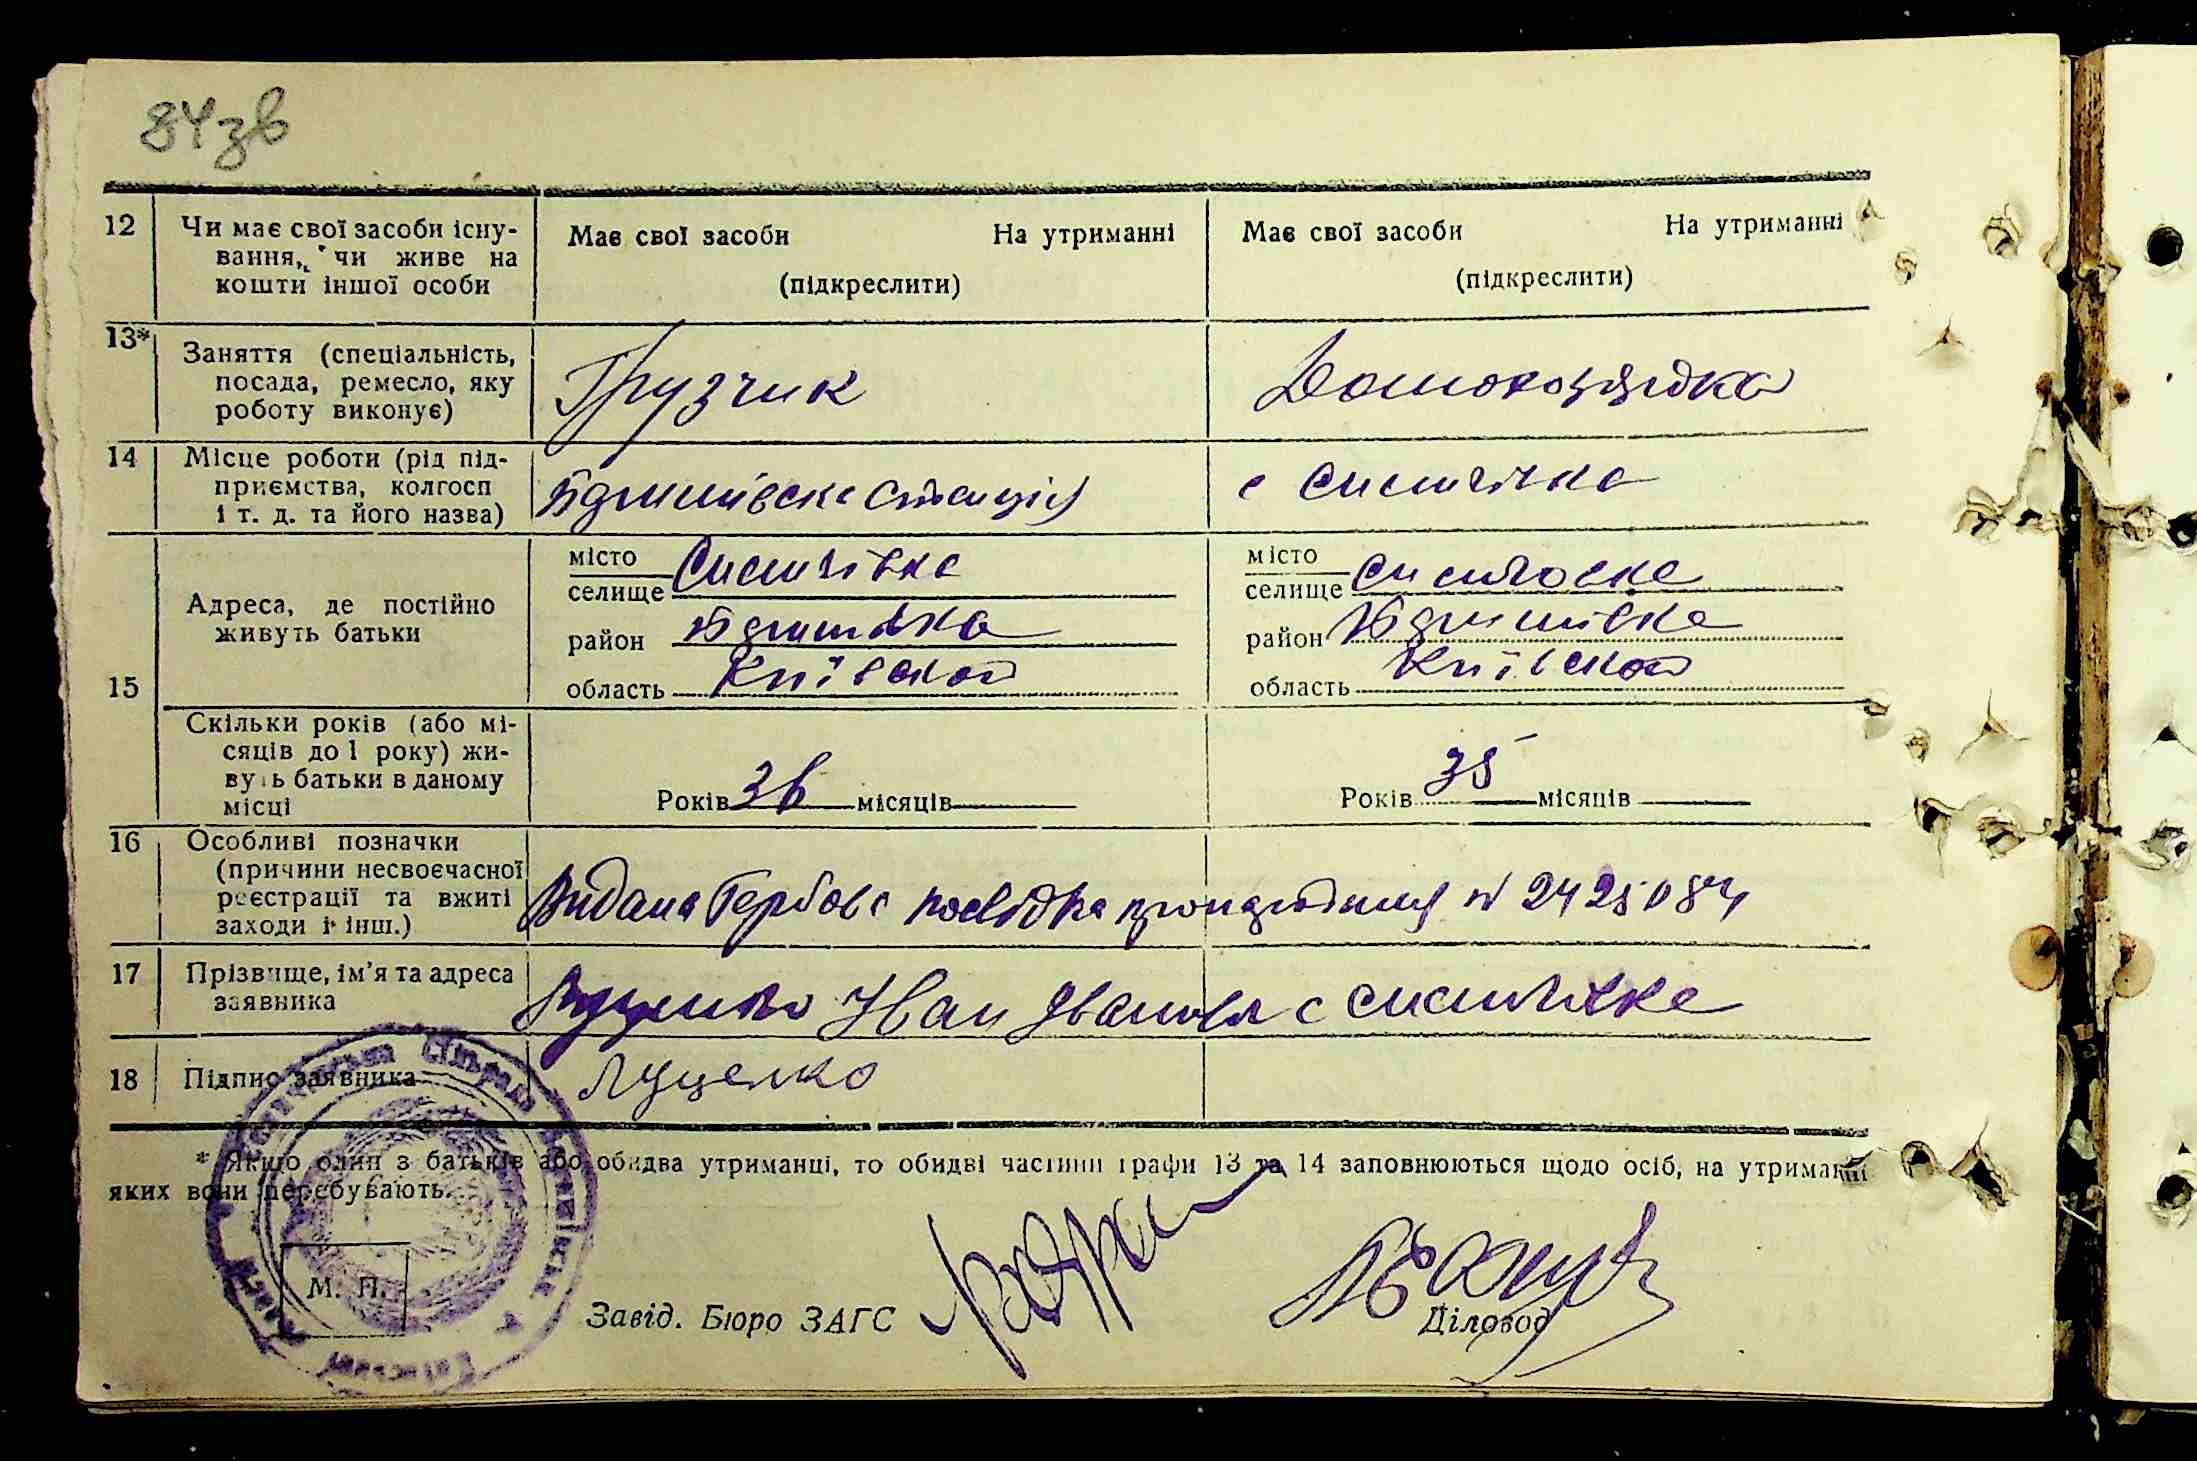 84зв
12 Чи має свої засоби існу-
вання, чи живе на
кошти іншої особи
Має свої засоби На утриманні
(підкреслити)
Має свої засоби На утриманні
(підкреслити)
13*
Заняття (спеціальність,
посада, ремесло, яку
роботу виконує)
Грузчик
Домохозяйка
14 Місце роботи (рід під-
приємства, колгосп
і т. д. та його назва)
станція
с
15
Адреса, де постійно
живуть батьки
місто
селище
район
область Київской
місто
селище
район
область Київской
Скільки років (або мі-
сяців до 1 року) жи-
вуть батьки в даному
місці
Років 36 місяців
Років 35 місяців
16 Особливі позначки
(причини несвоєчасної
реєстрації та вжиті
заходи і інш.)
Видана Гербова посвідка N 2425084
17 Прізвище, ім'я та адреса
заявника
Луценко Иван с
18 Підпис заявника
Луценко
* Якщо один з батьків або обидва утриманці, то обидві частини графи 13 та 14 заповнюються щодо осіб, на утриманні
яких вони перебувають.
М. П.
Завід. Бюро ЗАГС
Діловод